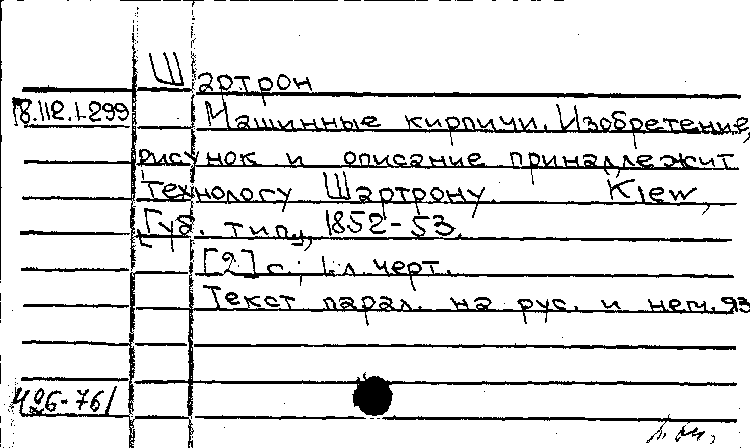 Шартрон
18.112.1.299
Машинные кирпичи. Изобретение,
рисунок и описание принадлежит
технологу Шартрону. Kiew,
[Губ. тип.], 1852-53.
[2] с.; 1 л. черт.
Текст парал. на рус. и нем. яз
Ч26-76/